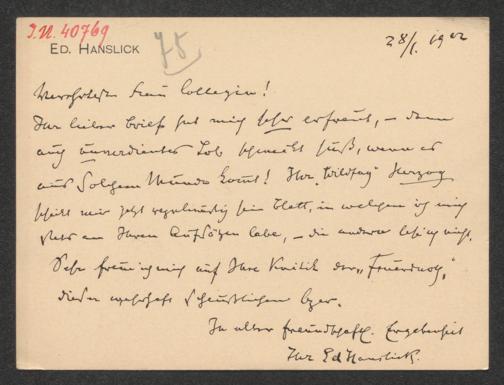 I.N. 40769
ED. HANSLICK
75
28/1. 1902
Verehrteste Frau Collegin!
Ihr lieber Brief hat mich sehr erfreut, – denn
auch unverdientes Lob schmeckt süß, wenn es
aus solchem Munde kommt! Ihr „Wildfang" Herzog
schickt mir jetzt regelmäßig sein Blatt, in welchem ich mich
stets an Ihren Aufsätzen labe, – die andern les' ich nicht.
Sehr freu' ich mich auf Ihre Kritik der „Feuersnoth",
dieser wahrhaft scheußlichen Oper.
In alter freundschaftl. Ergebenheit
Ihr Ed Hanslick.